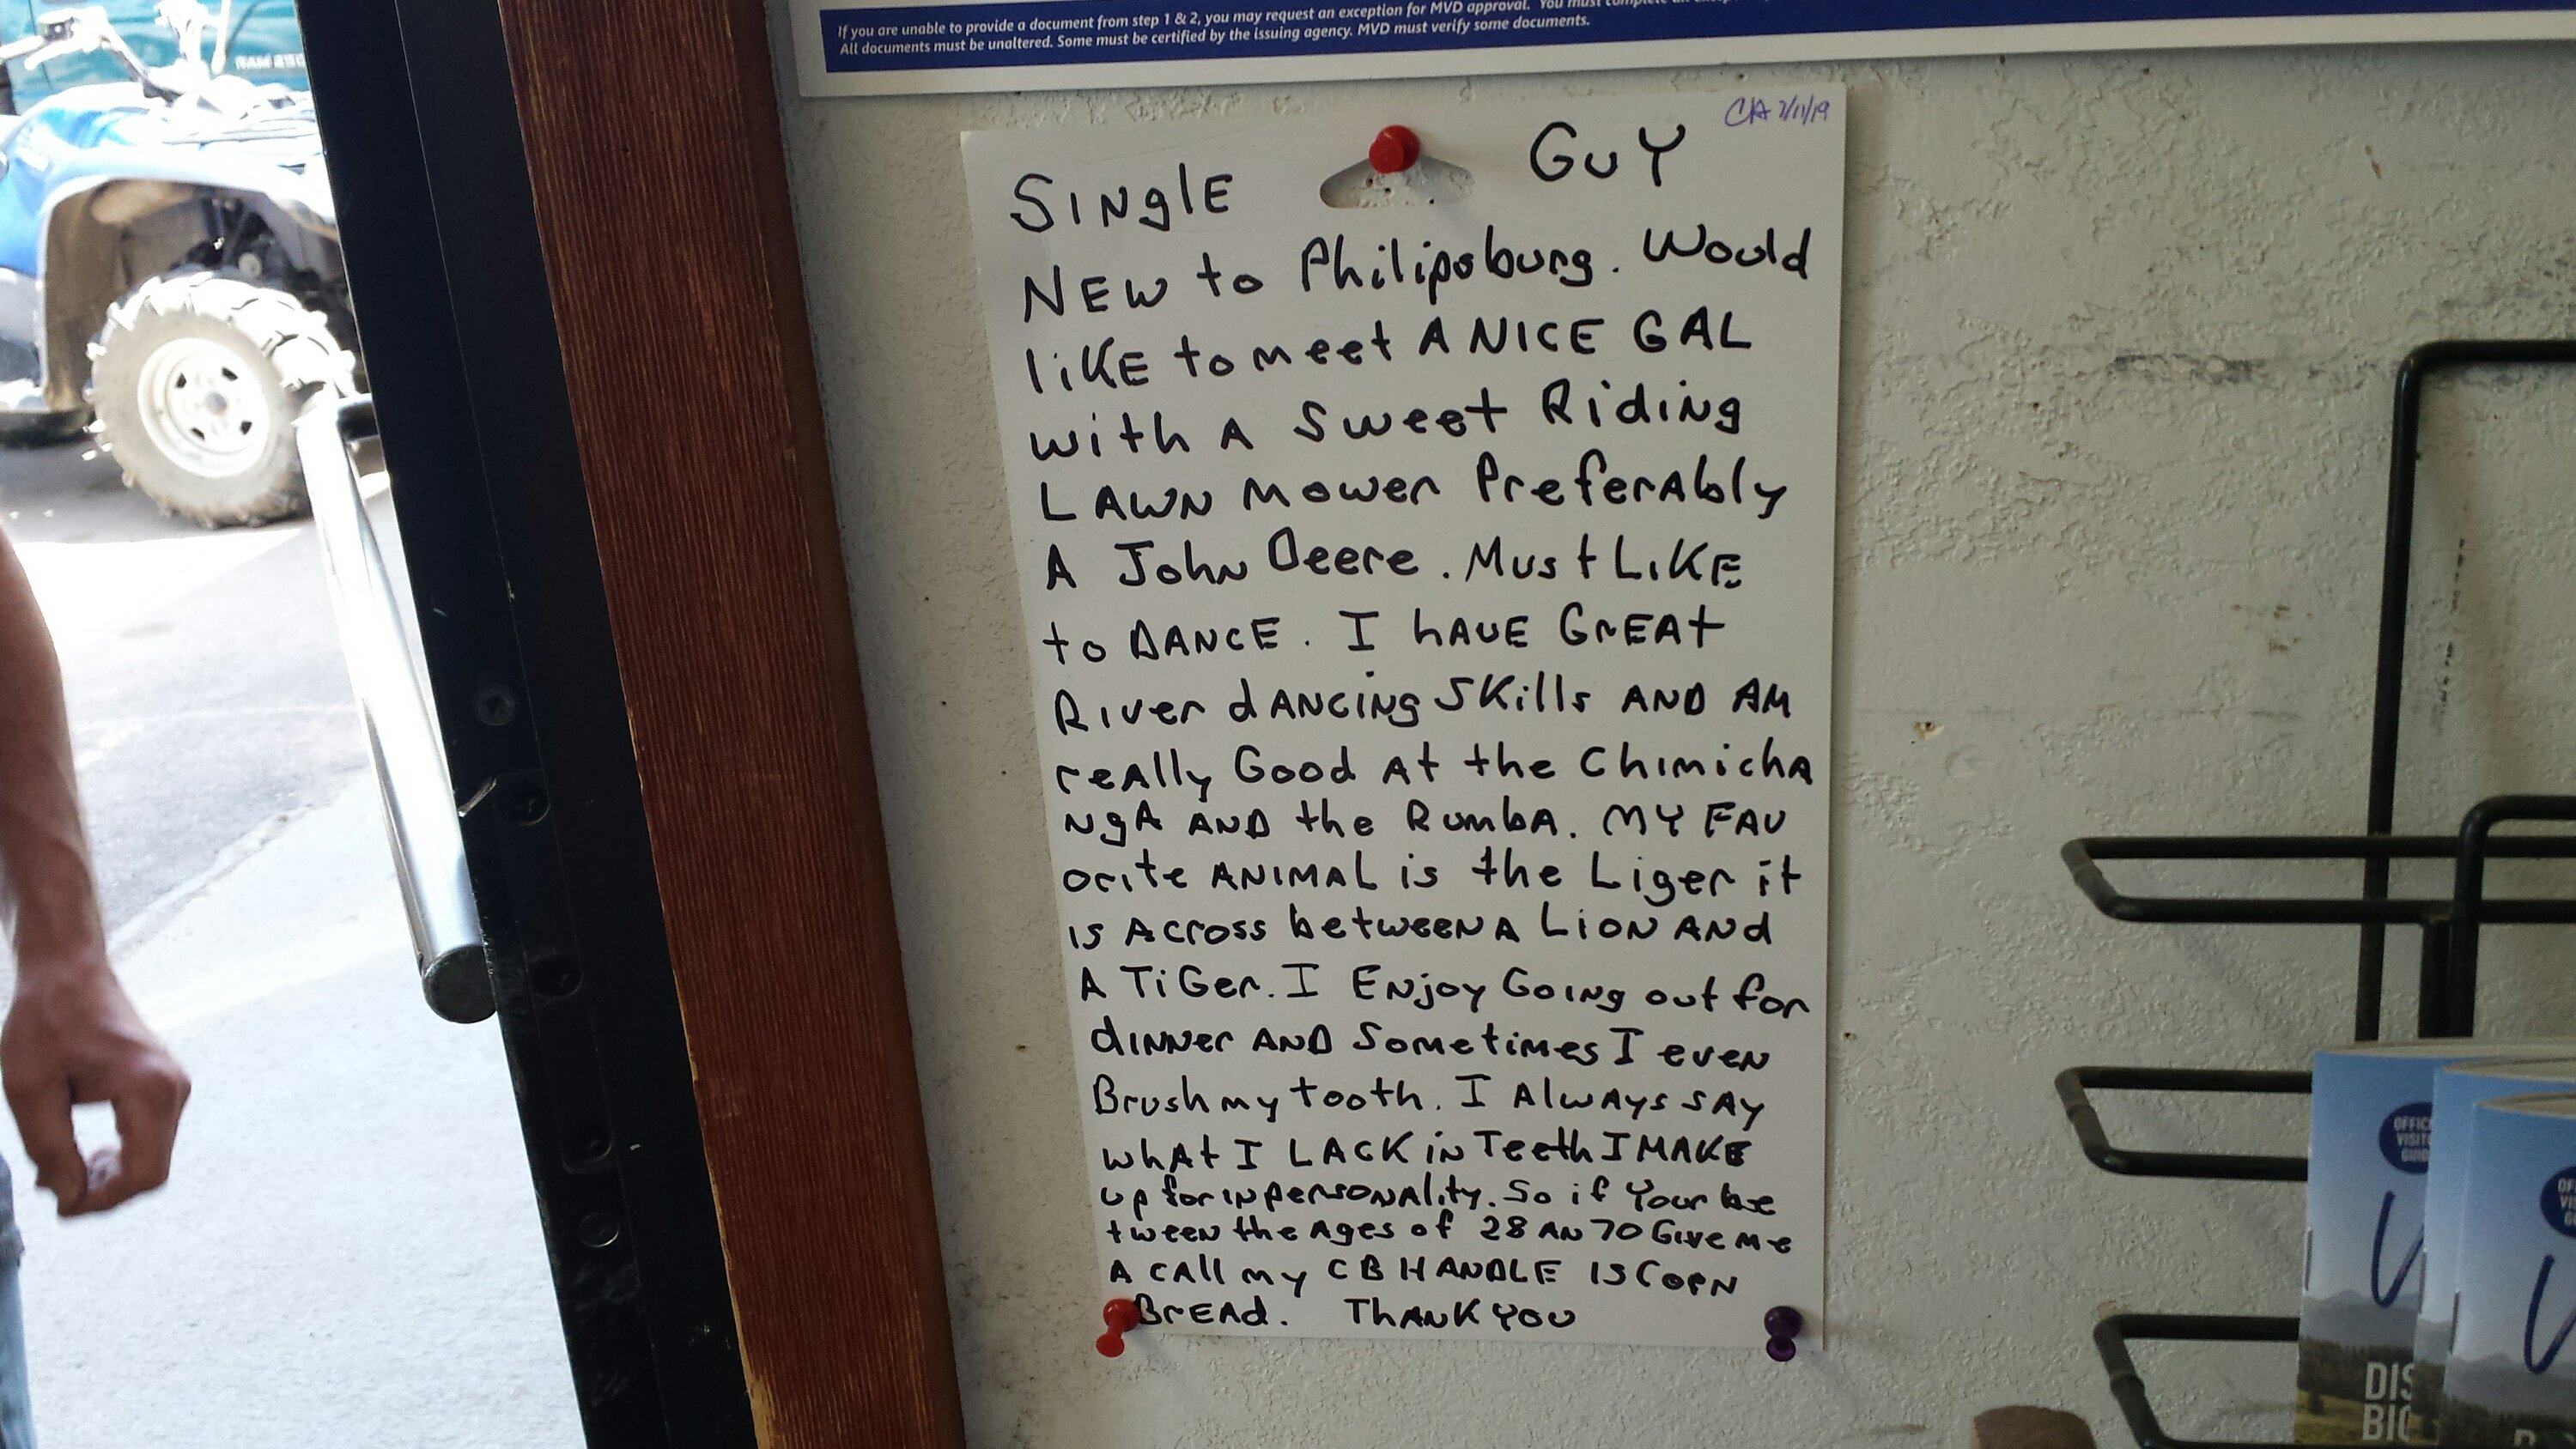 If you are unable to provide a document from step 1 & 2, you may request an exception for MVD approval. You must complete an
All documents must be unaltered. Some must be certified by the issuing agency. MVD must verify some documents.
CA 7/11/19
SINglE GuY
NEW to Philipsburg. Would
liKE to meet A NICE GAL
with A Sweet Riding
LAWN mower PreferAbly
A John Deere. Must LiKE
to DANCE. I hAVE GrEAt
River dANCiNg SKills AND AM
reAlly Good At the ChimichA
NgA AND the RumbA. MY FAV
orite ANIMAL is the Liger it
is Across betweeN A LioN ANd
A TiGer. I ENjoy GoiNg out for
diNNer AND Sometimes I eveN
Brush my tooth. I AlwAys sAy
whAt I LACK iN Teeth I MAKE
up for iN persoNAlity. So if Your be
tweeN the Ages of 28 AN 70 Give me
A CAll my CB HANDLE IS CorN
BrEAd. THANK YOU
OFFIC
VISIT
GUID
DIS
BIG